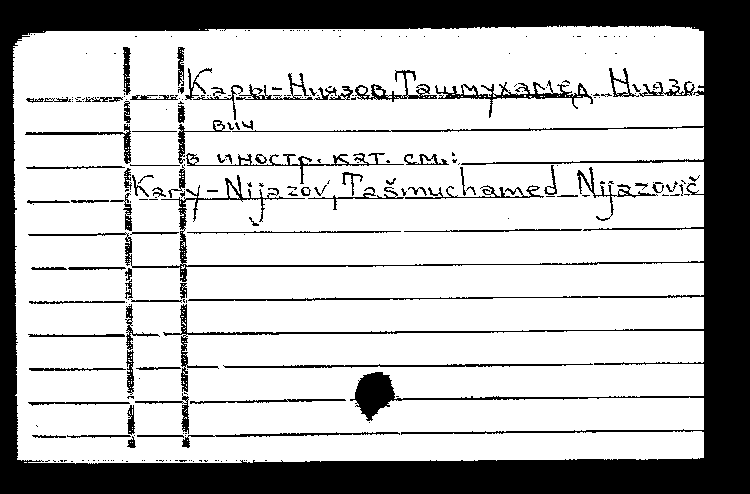 Кары-Ниязов, Ташмухамед Ниязо-
вич
в иностр. кат. см.:
Kary-Nijazov, Tašmuchamed Nijazovič